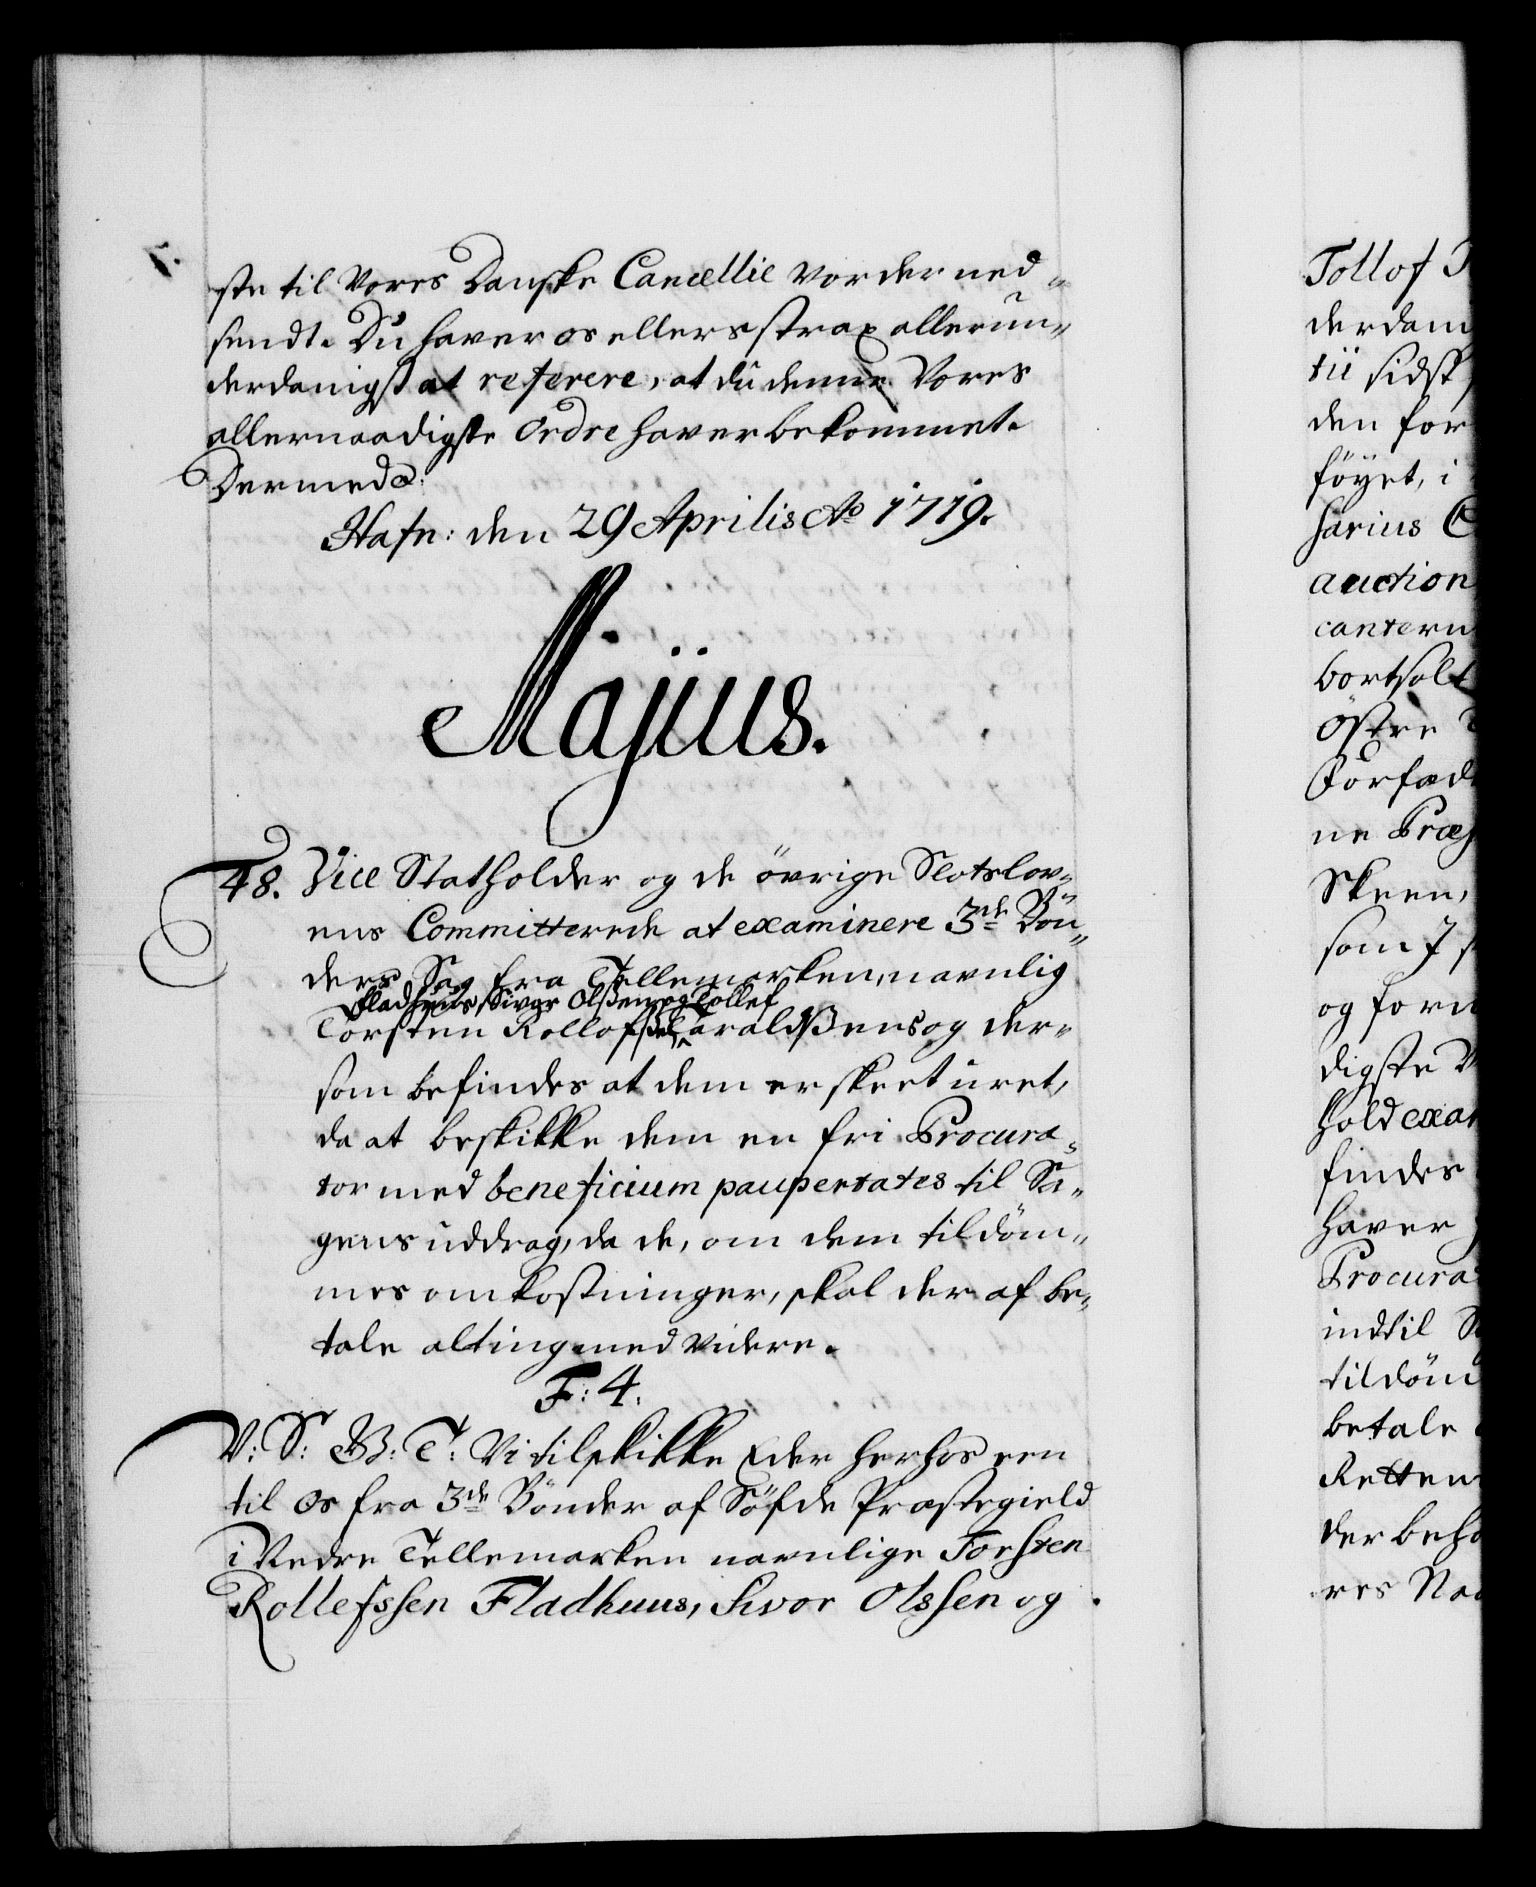 ste til Vores Danske Cancellie vorder ned-
sendt. Du haver os ellers strax allerun-
derdanigst at referere, at du denne Vores
allernaadigste Ordre haver bekommet.
Dermed &.
Hafn: den 29 Aprilis Ao 1719.
Majius.
48. Vice Statholder og de övrige Slotslov-
ens Committerede at examinere 3de Bön-
ders Sag fra Tellemarken, navnlig
Fladhuus, Sivor Olssen og Tollef
Torsten Rollofsen, Haraldssens og der-
som befindes at dem er skeet uret,
da at beskikke dem en fri Procura-
tor med beneficium paupertates til Sa-
gens uddrag, da de, om dem tildöm-
mes omkostninger, skal der af be-
tale alting med videre.
F: 4.
V: S: W: T: Vi tilskikke Eder herhos een
til os fra 3de Bönder af Söfde Præstegield
i Nedre Tellemarken navnlige Torsten
Rollefssen Fladhuus, Sivor Olssen og
Tollof
derdan
tii sidst
den for
föyet, i
harius
auction
cantern
bortsolt
Östre
Forfad
ne Præs
Skeen,
som J
og forn
digste
hold exa
findes
haver
Procura
indtil
tildöm
betale
Retten
der beho
res Naa